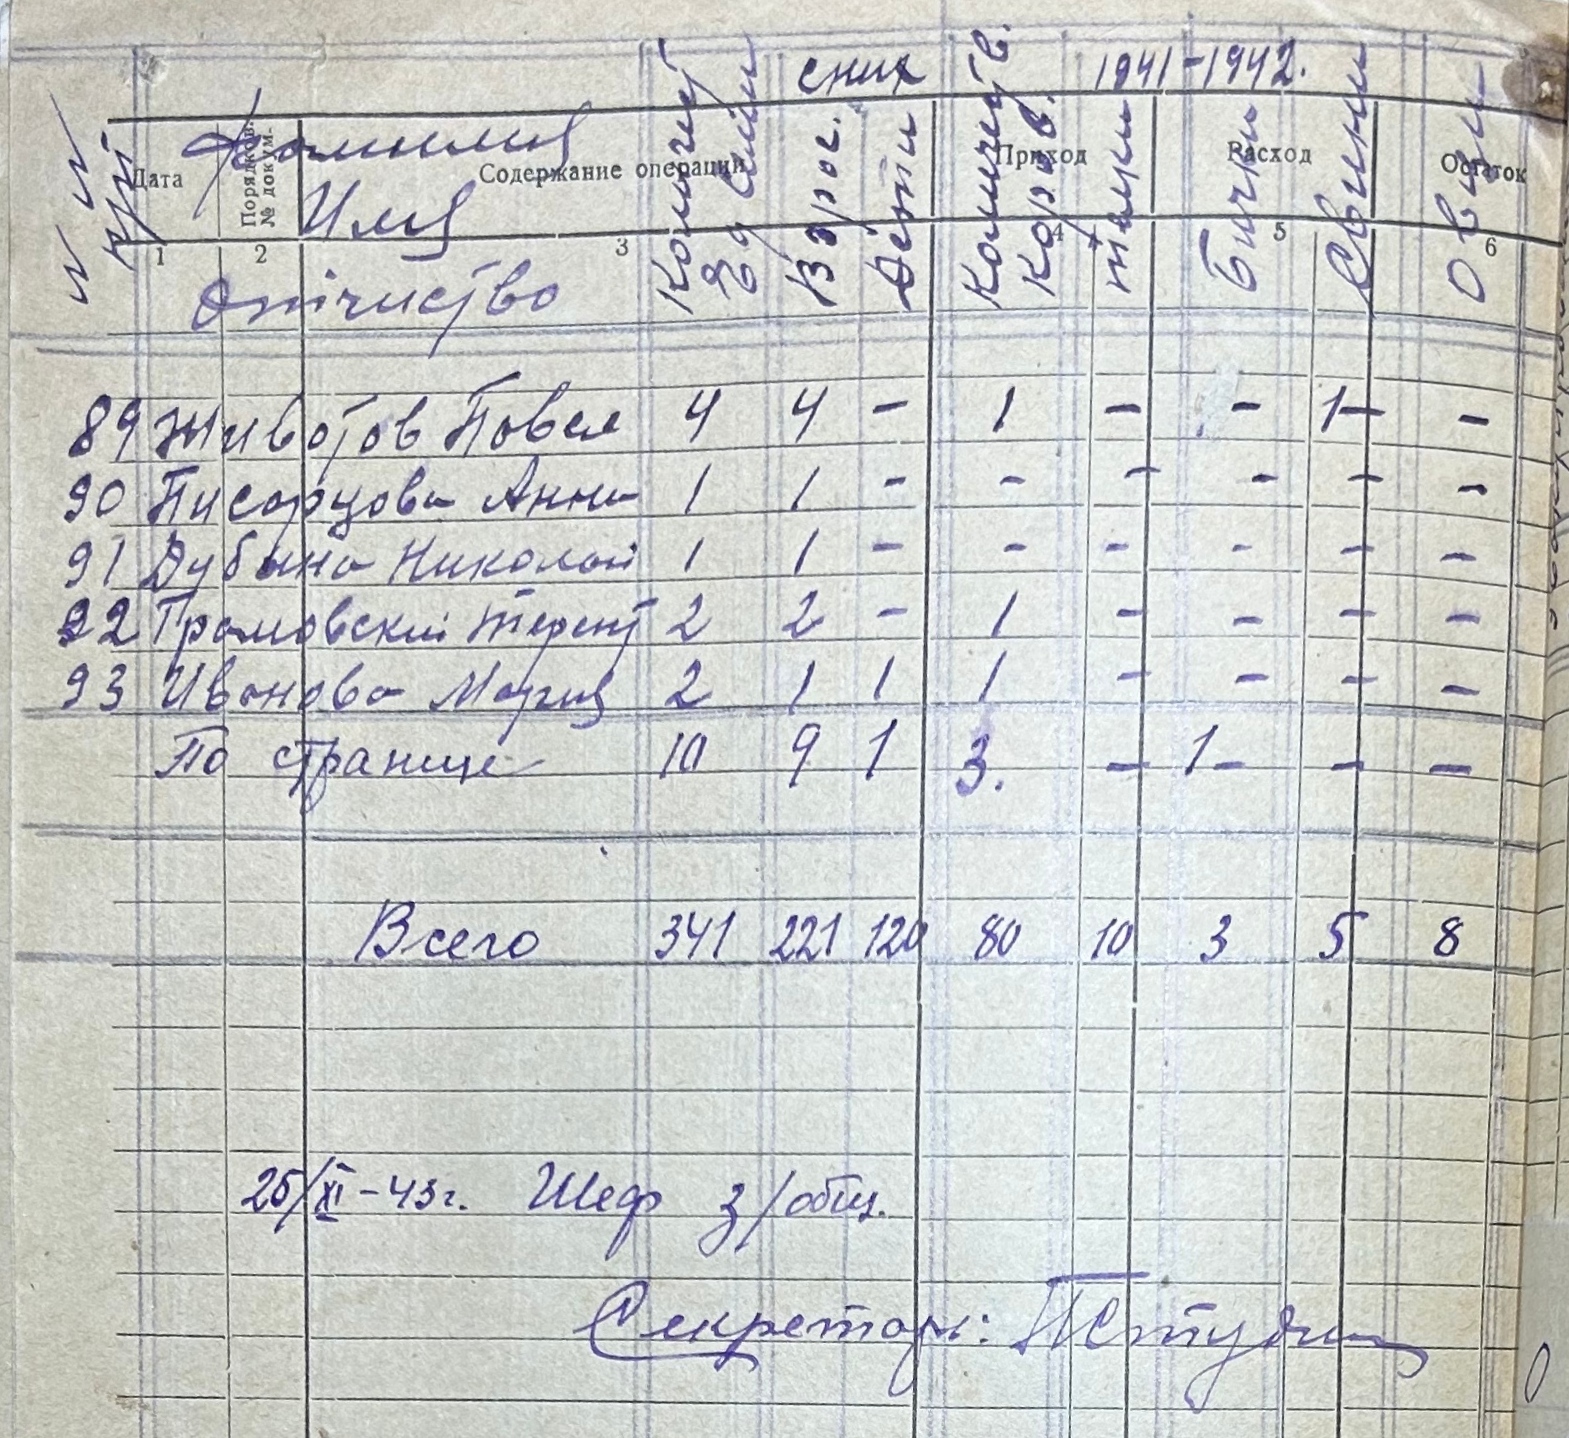 сних 1941-1942.
№ № п/п Фамилия Имя Отчиство Количест Ед семи Взрос. Дети Количеств. Коров. телки Бички Свини Овци
Дата Порядков. № докум- Содержание операции Приход Расход Остаток
1 2 3 4 5 6
89 Животов Повел 4 4 - 1 - - 1- -
90 Писарцова Анна 1 1 - - - - - -
91 Дубына Николай 1 1 - - - - - -
92 Громовский Терент 2 2 - 1 - - - -
93 Иванова Мария 2 1 1 1 - - - -
По странице 10 9 1 3. - 1- - -
Всего 341 221 120 80 10 3 5 8
25/XI-43г. Шеф з/общ.
Секретарь: